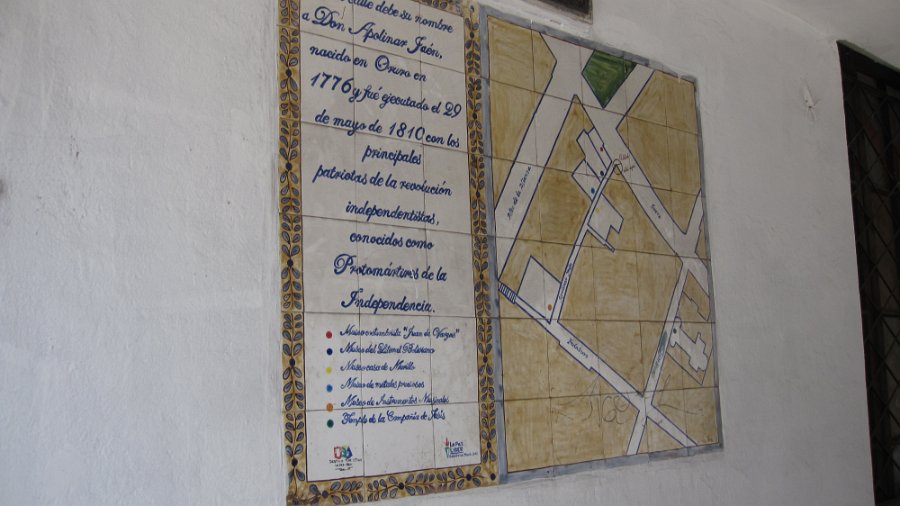 calle debe su nombre
a Don Apolinar Jaén,
nacido en Oruro en
1776 y fué ejecutado el 29
de mayo de 1810 con los
principales
patriotas de la revolución
independentistas,
conocidos como
Protomártires de la
Independencia.
Museo costumbrista "Juan de Vargas"
Museo del Litoral Boliviano
Museo casa de Murillo
Museo de metales preciosos
Museo de Instrumentos Musicales
Templo de la Compañía de Jesús
La Paz
LIDER
Sucre